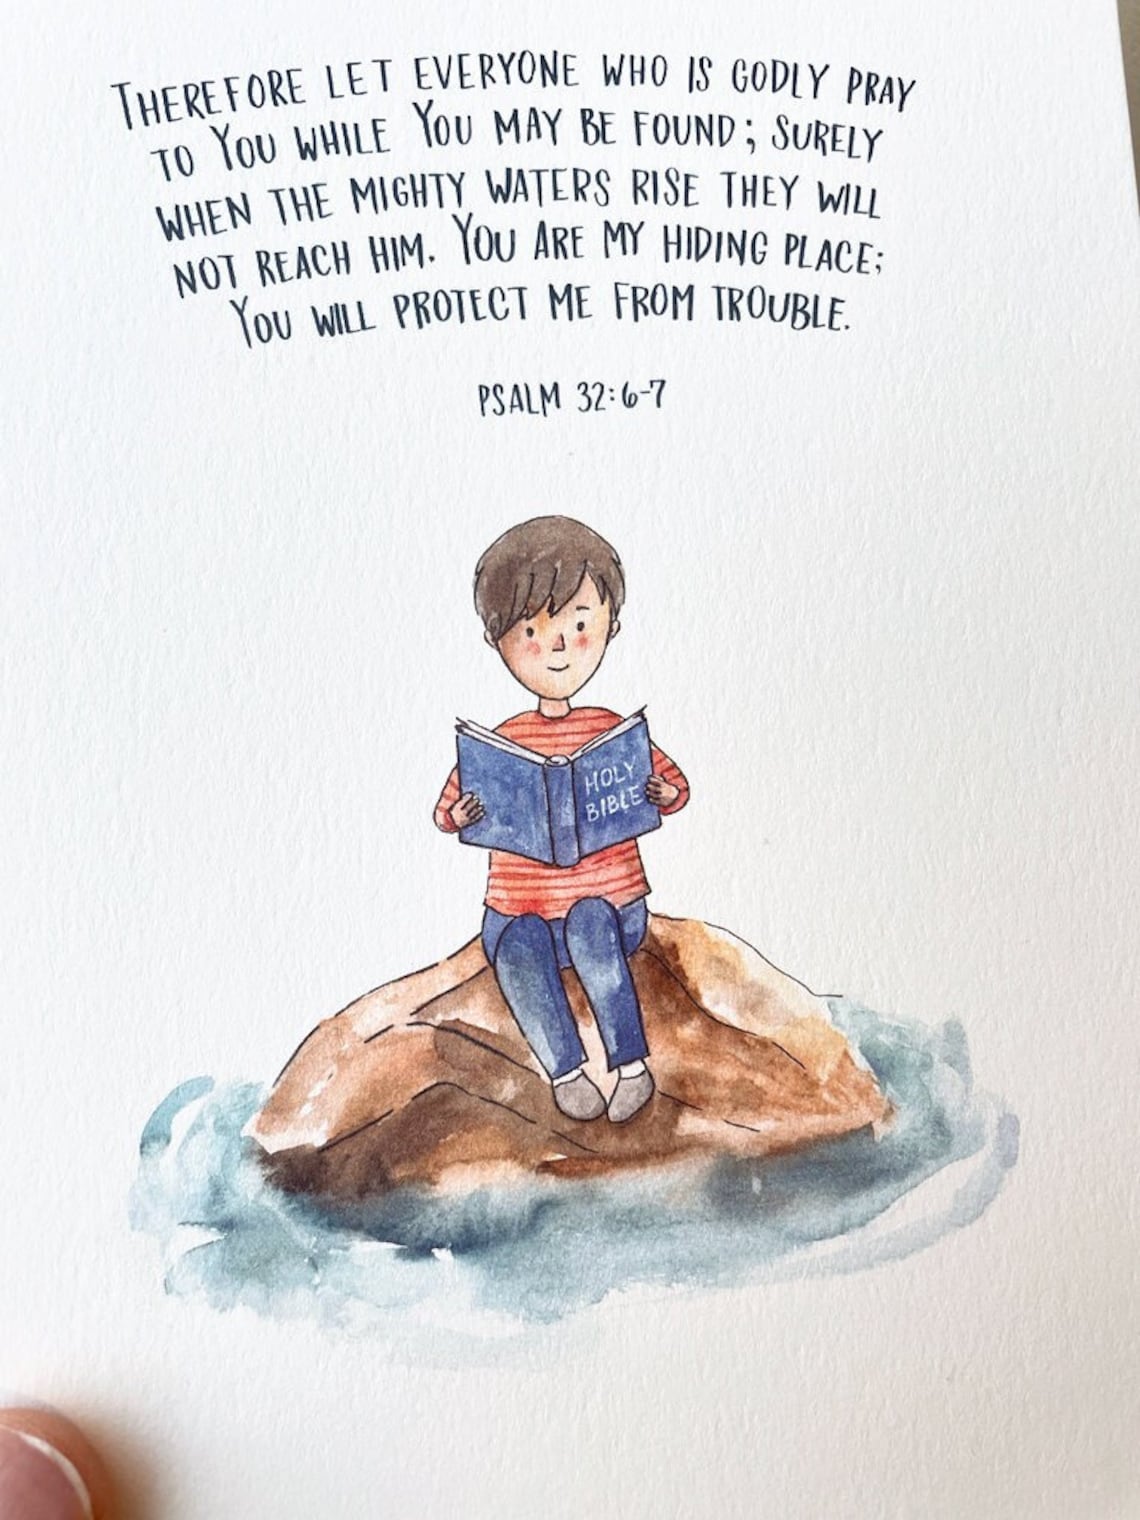 THEREFORE LET EVERYONE WHO IS GODLY PRAY
TO YOU WHILE YOU MAY BE FOUND; SURELY
WHEN THE MIGHTY WATERS RISE THEY WILL
NOT REACH HIM. YOU ARE MY HIDING PLACE;
YOU WILL PROTECT ME FROM TROUBLE.
PSALM 32:6-7
HOLY
BIBLE